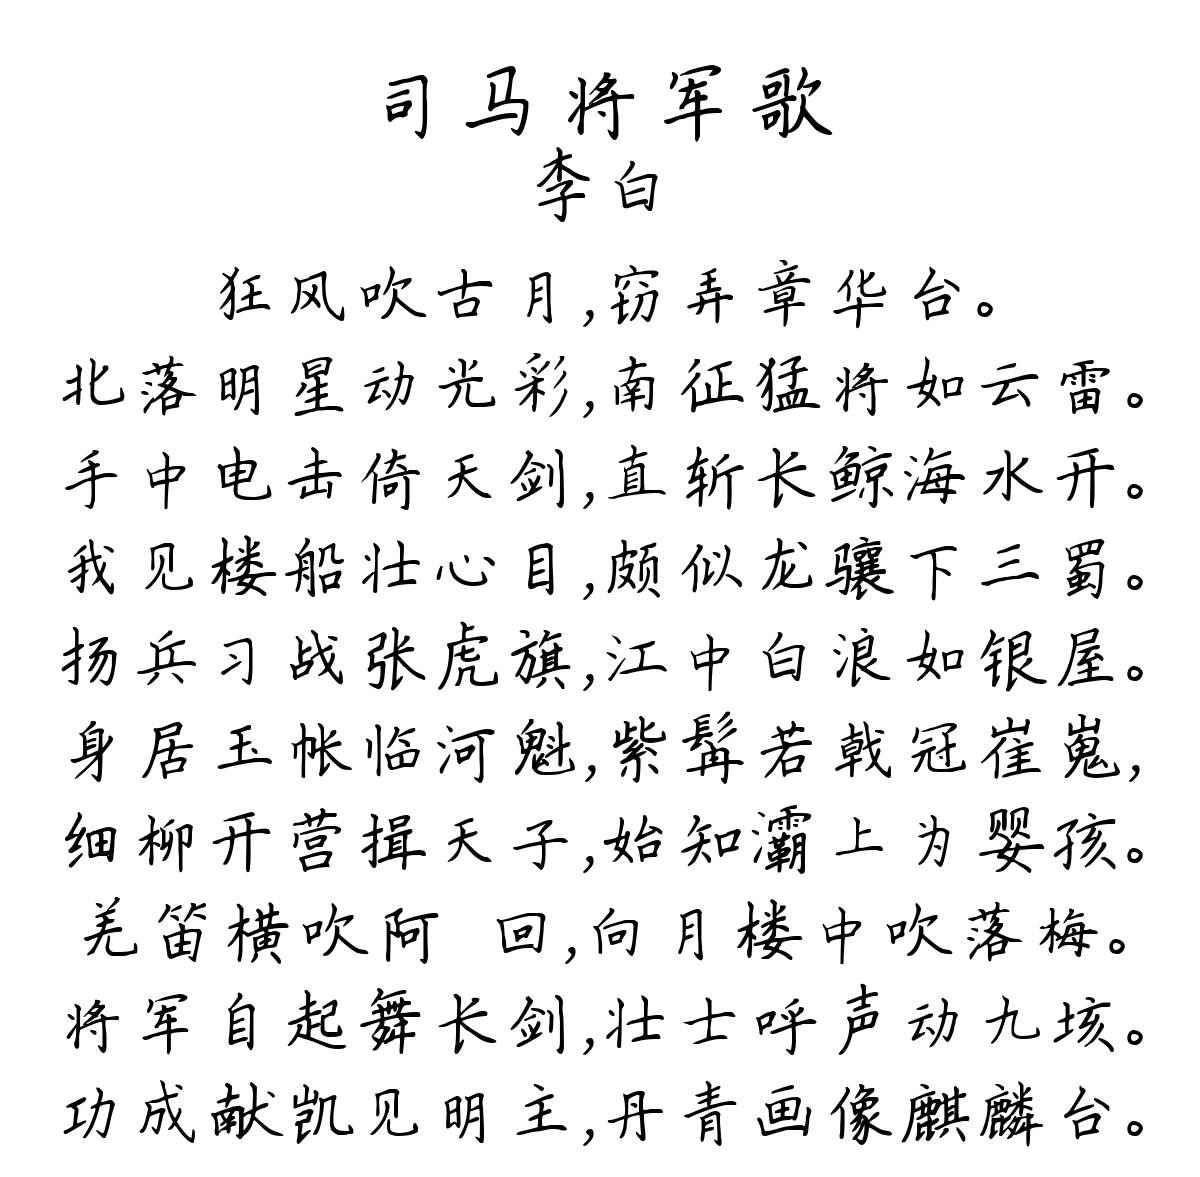 司马将军歌
李白
狂风吹古月,窃弄章华台。
北落明星动光彩,南征猛将如云雷。
手中电击倚天剑,直斩长鲸海水开。
我见楼船壮心目,颇似龙骧下三蜀。
扬兵习战张虎旗,江中白浪如银屋。
身居玉帐临河魁,紫髯若戟冠崔嵬,
细柳开营揖天子,始知灞上为婴孩。
羌笛横吹阿 回,向月楼中吹落梅。
将军自起舞长剑,壮士呼声动九垓。
功成献凯见明主,丹青画像麒麟台。